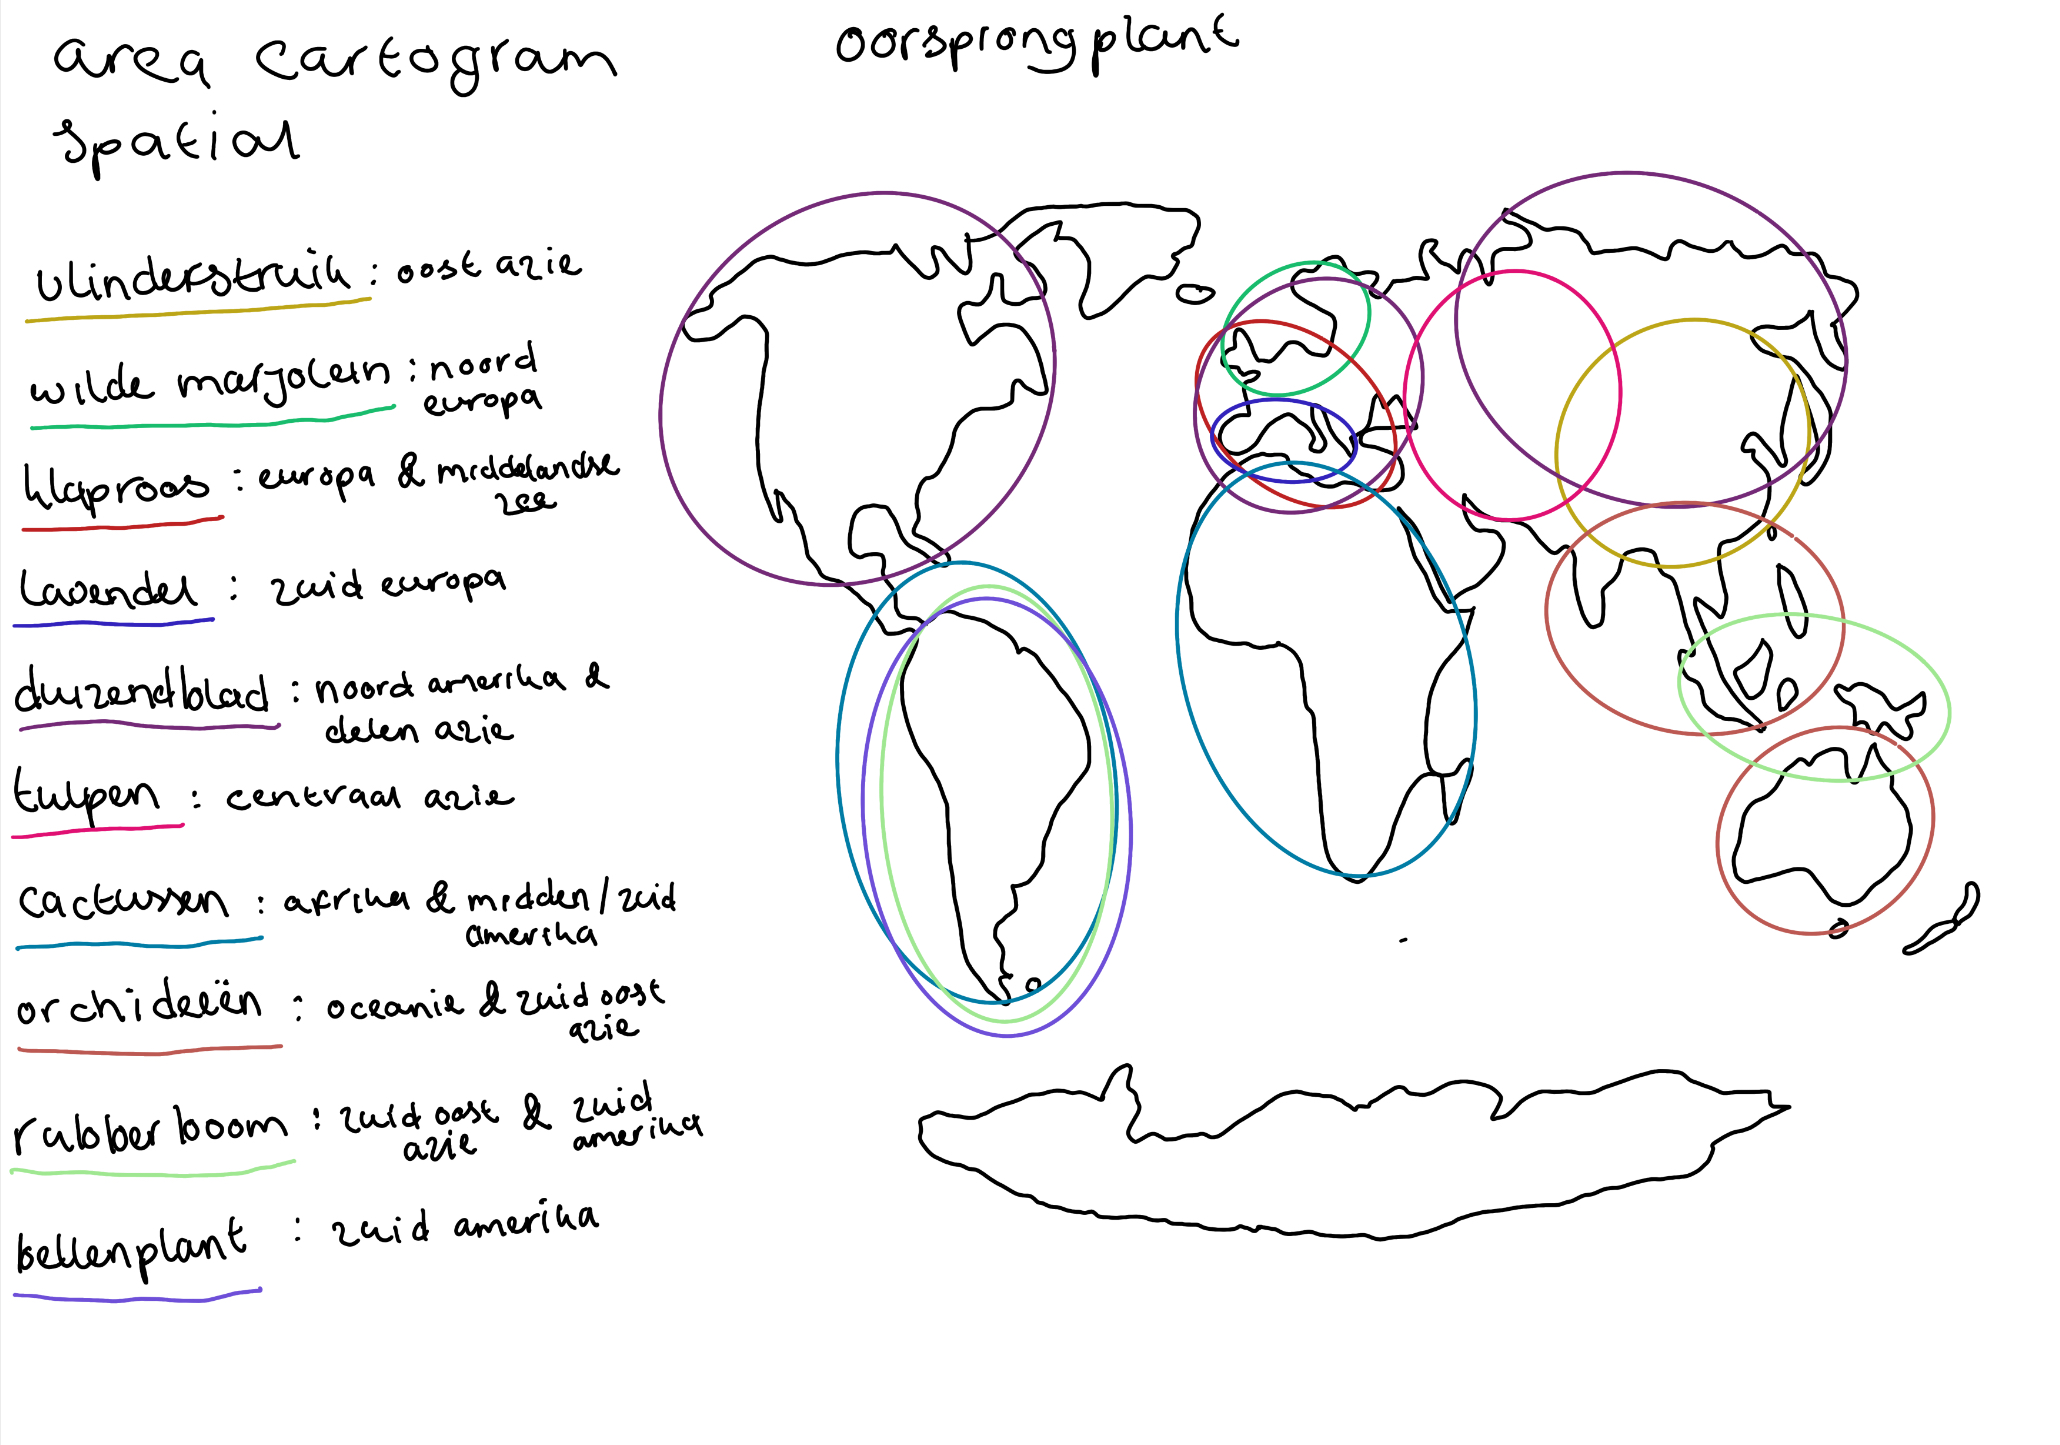 area cartogram
spatial
oorsprong plant
vlinderstruik : oost azie
wilde marjolein : noord
europa
klaproos : europa & middelandse
zee
lavendel : zuid europa
duizendblad : noord amerika &
delen azie
tulpen : centraal azie
cactussen : afrika & midden/zuid
amerika
orchideeën : oceanie & zuid oost
azie
rubberboom : zuid oost & zuid
azie amerika
bellenplant : zuid amerika